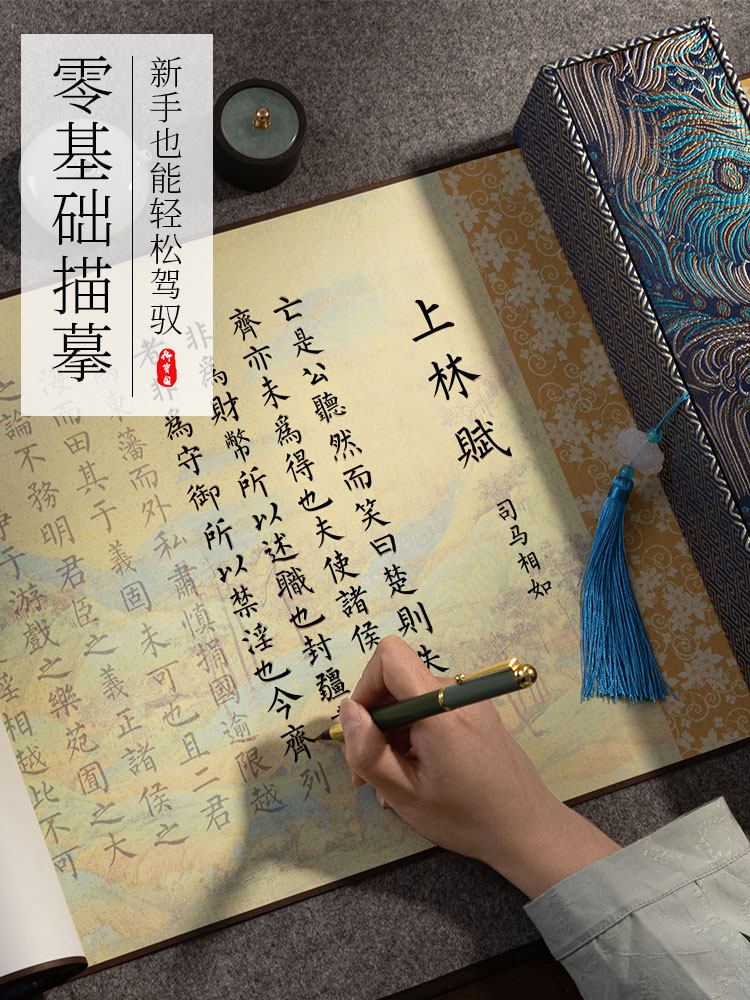 零基础描摹
新手也能轻松驾驭
上林賦
司马相如
亡是公聽然而笑曰楚則失
齊亦未爲得也夫使諸侯
非爲財幣所以述職也封疆
者非爲守御所以禁淫也今齊列
爲東藩而外私肅慎捐國逾限越
海而田其于義固未可也且二君
之論不務明君臣之義正諸侯之
于游戲之樂苑囿之大
淫相越此不可